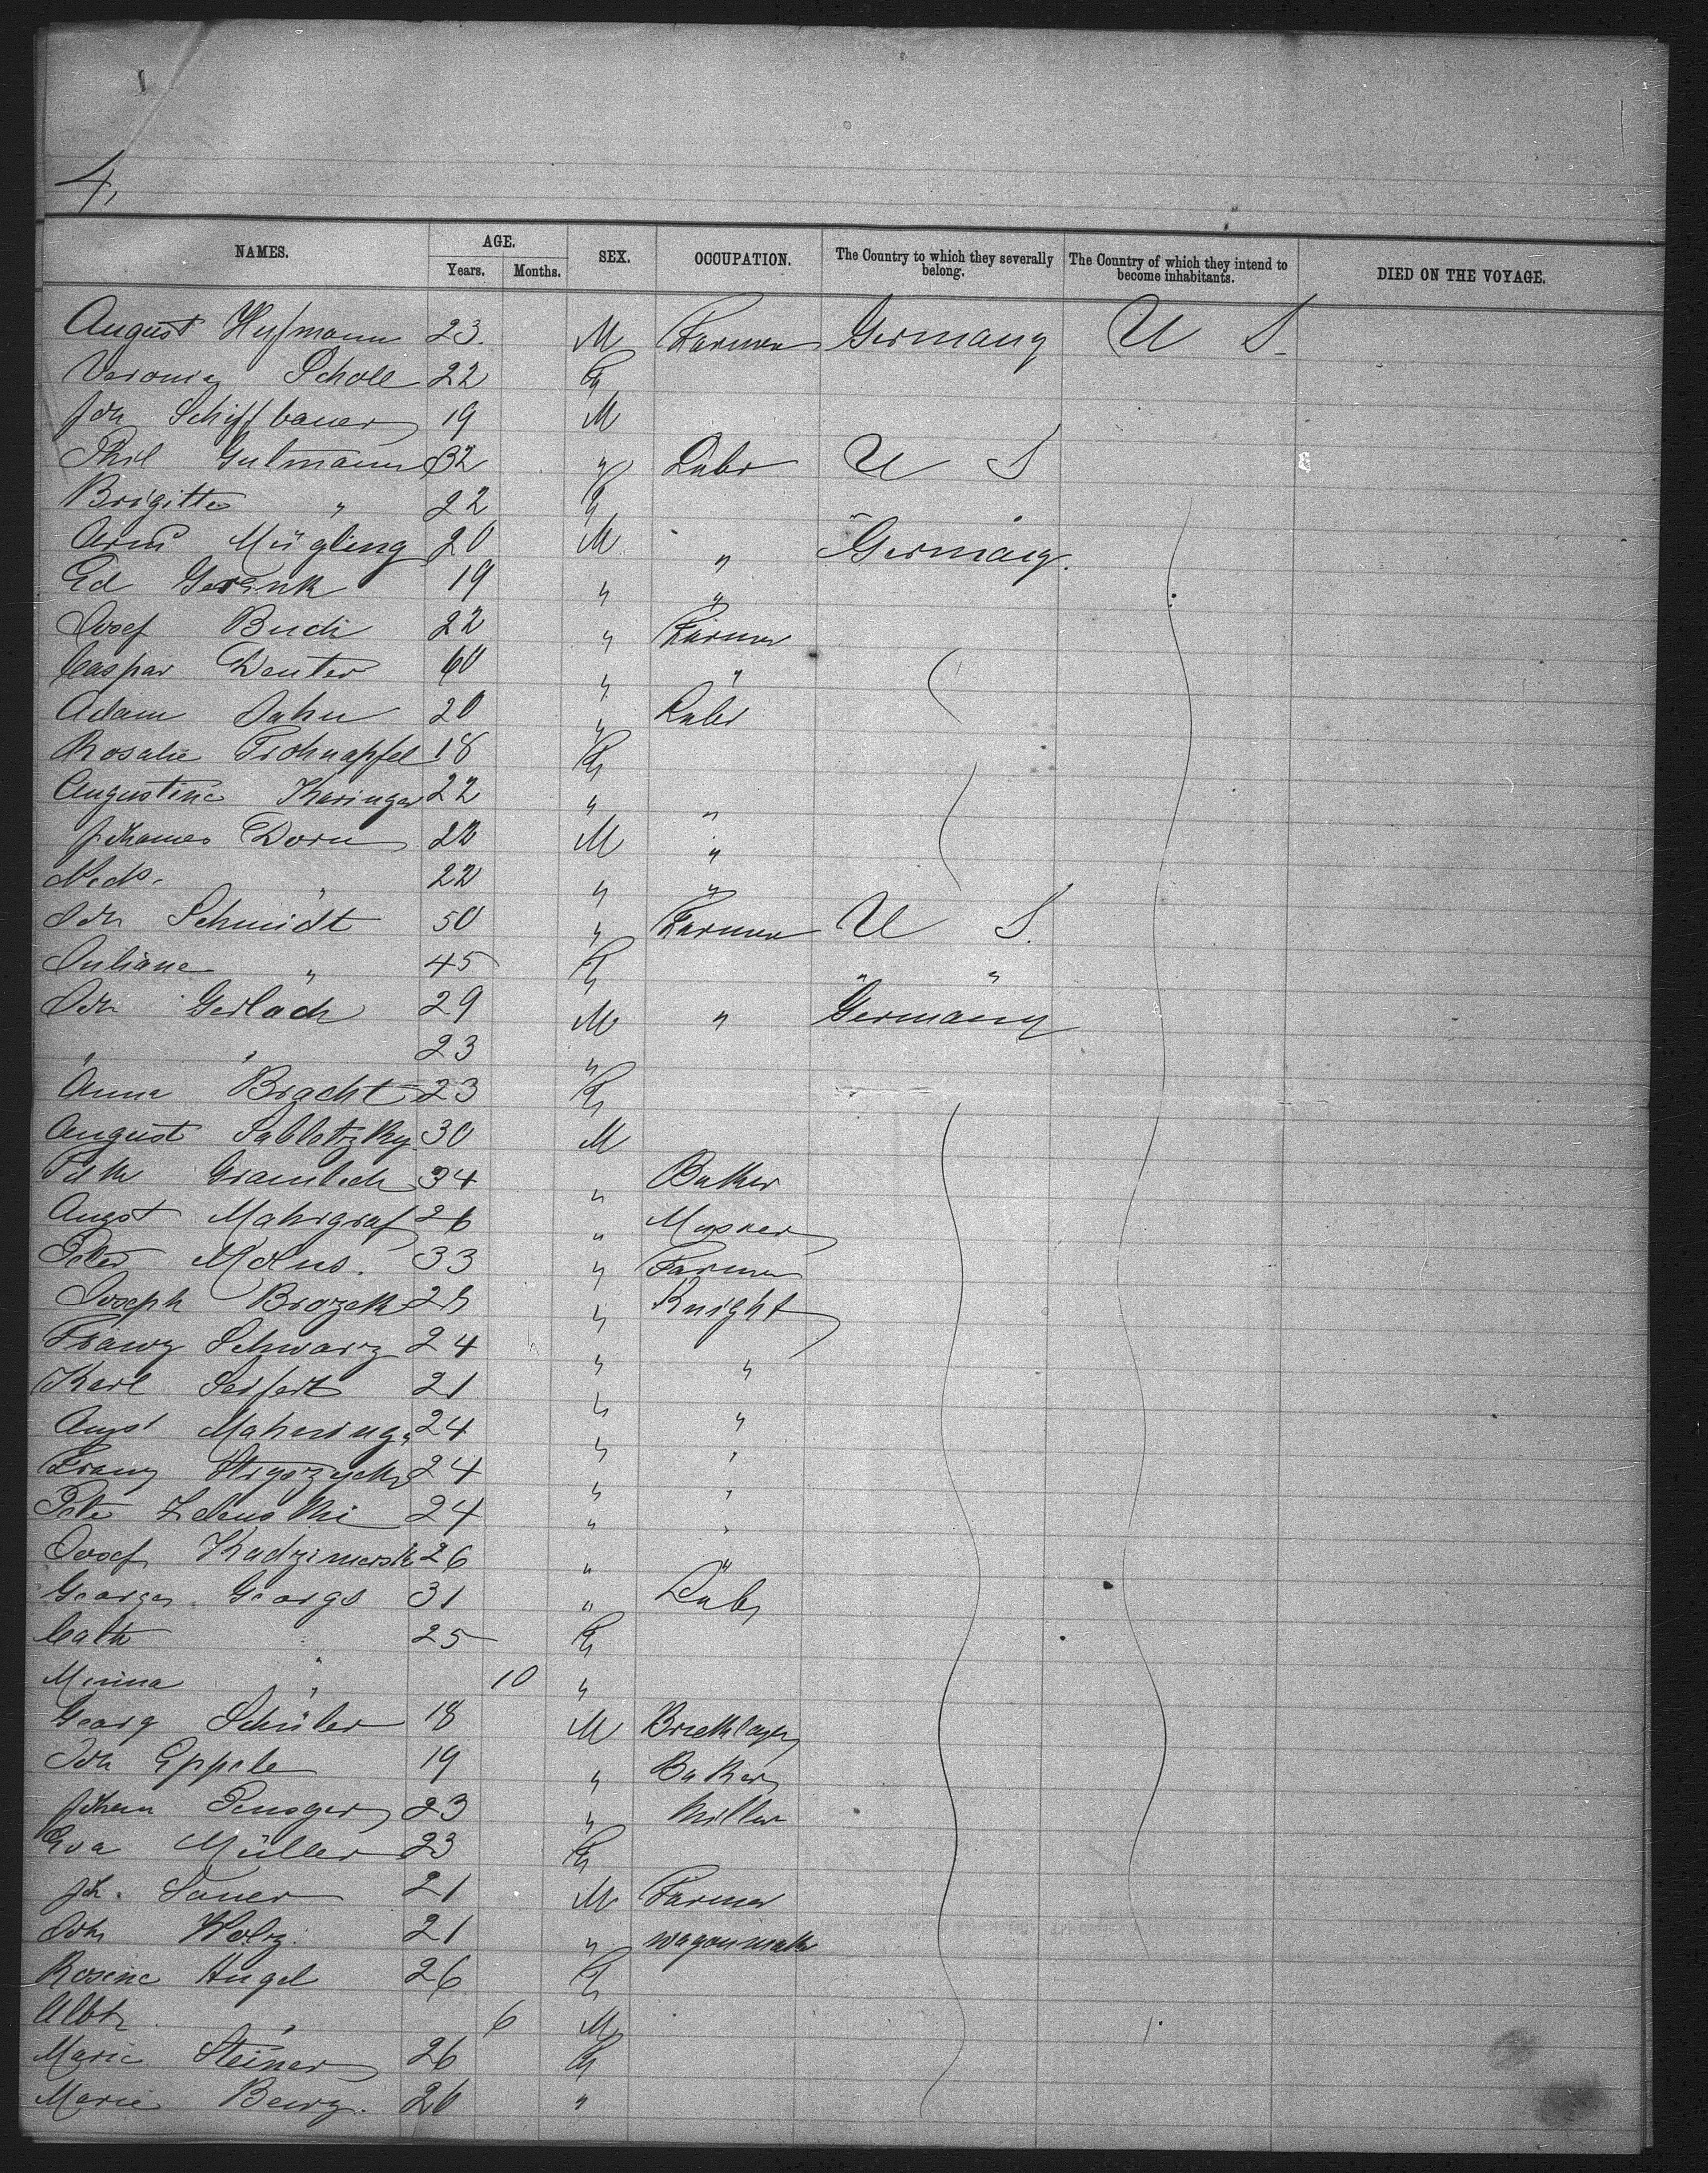 4,
NAMES. AGE. SEX. OCCUPATION. The Country to which they severally belong. The Country of which they intend to become inhabitants. DIED ON THE VOYAGE.
Years. Months.
August Hufmann 23. M Farmer Germany U S
Veronica Scholl 22 F
Joh Schiffbauer 19 M
Phil Gutmann 32 " Labr U S
Brigitte " 22 F
Mügling 20 M " Germany.
Ed 19 " "
Josef Budi 22 " Farmer
Caspar Deuter 60 " "
Adam Jahn 20 " Labr
Rosalie Trohnapfel 18 F
Augustine Karinger 22 " "
Johannes Dorn 22 M "
" 22 " "
Joh Schmidt 50 " Farmer U S.
Juliane " 45 F " "
Joh Gerlach 29 M " Germany
" " 23 "
Anna Bracht 23 F
August Sablotzky 30 M
34 " Baker
Augst Mahrgraf 26 "
Peter 33 " Farmer
Joseph Brozek " Knight
Franz Schwarz 24 " "
Karl Seifert 21 " "
Augst 24 " "
Franz 24 " "
Peter 24 " "
Josef 26 " "
George Georgs 31 " Labr
Cath " 25 F
Minna " 10 "
Georg Schüler 18 M Bricklayer
Joh Eppele 19 " Baker
Johann 23 " Miller
Eva Müller 23 F
Jh. Sauer 21 M Farmer
Joh 21 " wagonmaker
Rosine Angel 26 F
Albt " 6 M
Marie Steiner 26 F
Marie 20 "